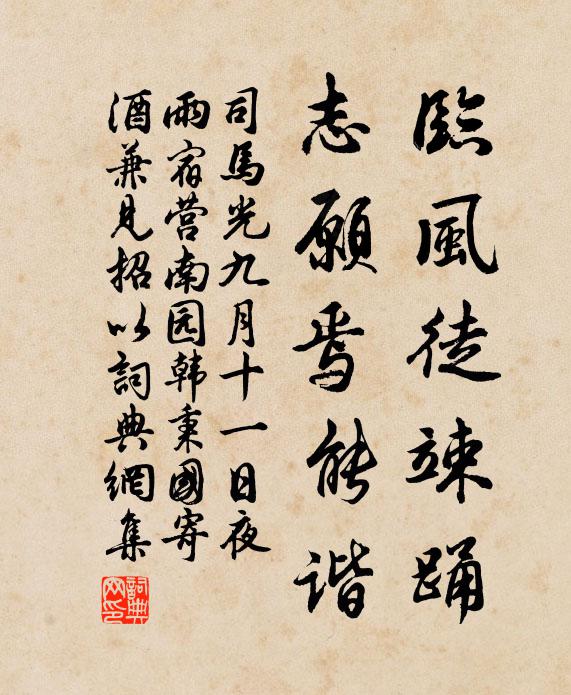 臨風徒竦踊
志願焉能谐
司馬光九月十一日夜
雨宿营南园韩秉國寄
酒兼見招以詞典網集
詞典網印